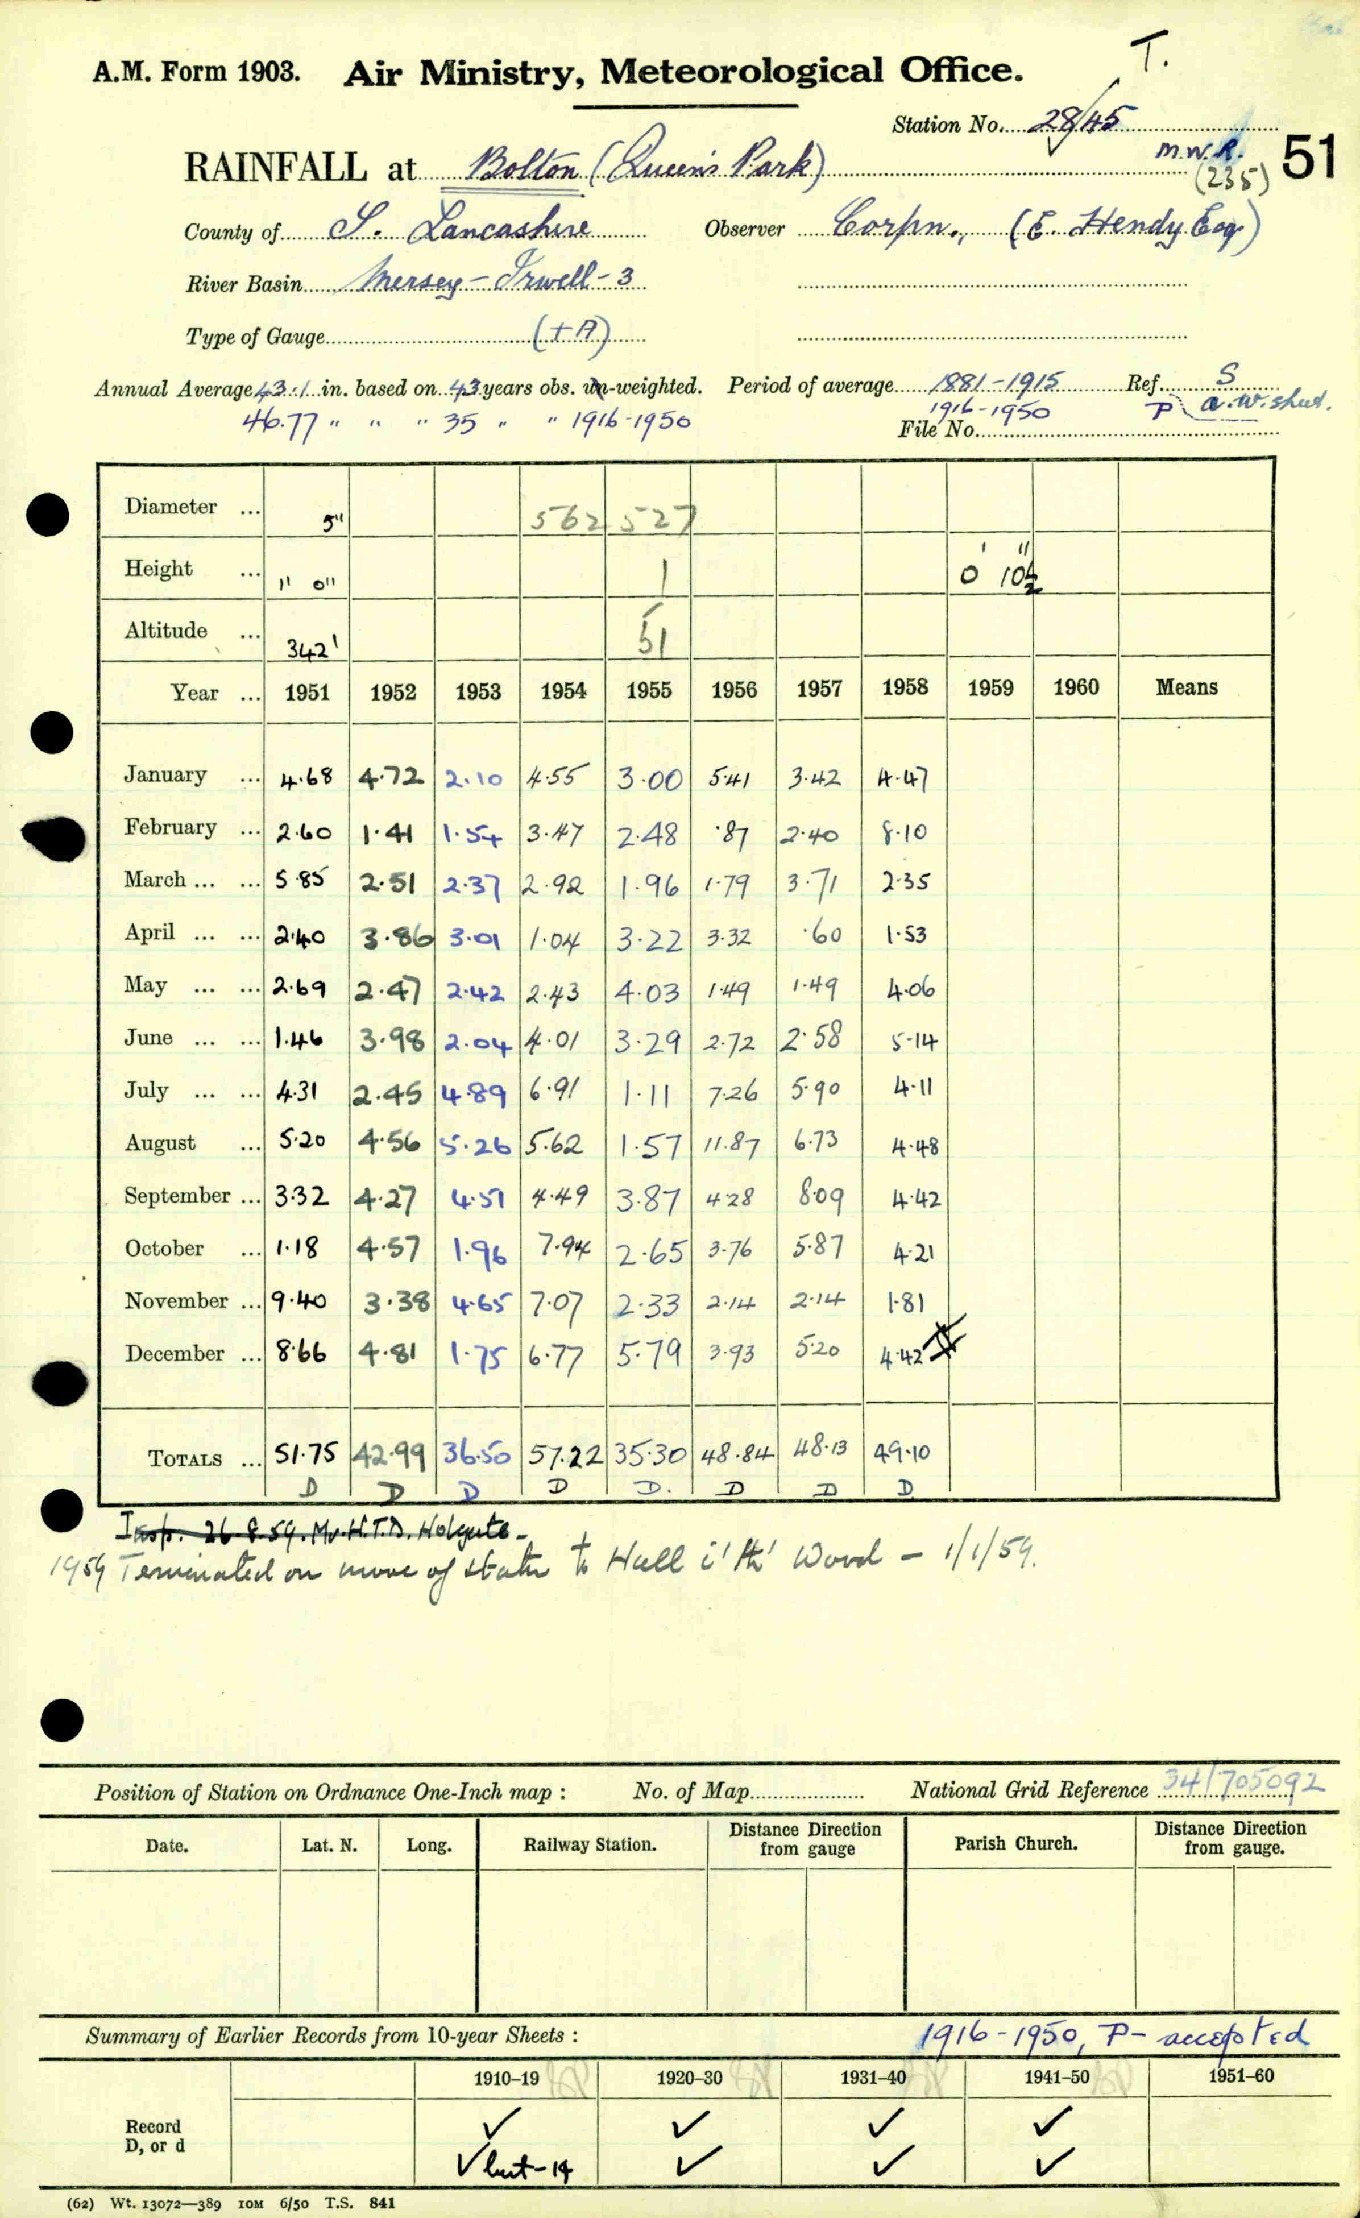 T.
A.M. Form 1903. Air Ministry, Meteorological Office.
Station No. 28/45
M.W.R. 51
(235)
RAINFALL at Bolton (Queen's Park)
County of S. Lancashire Observer Corpn., (E. Hendy Esq)
River Basin Mersey - Irwell - 3
Type of Gauge (+A)
Annual Average 43.1 in. based on 43 years obs. un-weighted. Period of average 1881-1915 Ref. S
46.77 " " " 35 " " 1916-1950 1916-1950 P a.w. shut.
File No.
Diameter ... 5" 562 527
Height ... 1' 0" 1 0' 10½"
Altitude ... 342' 51
Year ... 1951 1952 1953 1954 1955 1956 1957 1958 1959 1960 Means
January ... 4.68 4.72 2.10 4.55 3.00 5.41 3.42 4.47
February ... 2.60 1.41 1.54 3.47 2.48 .87 2.40 8.10
March ... ... 5.85 2.51 2.37 2.92 1.96 1.79 3.71 2.35
April ... ... 2.40 3.86 3.01 1.04 3.22 3.32 .60 1.53
May ... ... 2.69 2.47 2.42 2.43 4.03 1.49 1.49 4.06
June ... ... 1.46 3.98 2.04 4.01 3.29 2.72 2.58 5.14
July ... ... 4.31 2.45 4.89 6.91 1.11 7.26 5.90 4.11
August ... 5.20 4.56 5.26 5.62 1.57 11.87 6.73 4.48
September ... 3.32 4.27 4.51 4.49 3.87 4.28 8.09 4.42
October ... 1.18 4.57 1.96 7.94 2.65 3.76 5.87 4.21
November ... 9.40 3.38 4.65 7.07 2.33 2.14 2.14 1.81
December ... 8.66 4.81 1.75 6.77 5.79 3.93 5.20 4.42
TOTALS ... 51.75 42.99 36.50 57.22 35.30 48.84 48.13 49.10
D D D D D. D D D
Insp. 26.8.59. Mr. H.T.D. Holgate
1959 Terminated on move of statn to Hall i' th' Wood - 1/1/59.
Position of Station on Ordnance One-Inch map : No. of Map National Grid Reference 34/705092
Date. Lat. N. Long. Railway Station. Distance from gauge Direction Parish Church. Distance from gauge. Direction
Summary of Earlier Records from 10-year Sheets : 1916-1950, P- accepted
1910–19 1920–30 1931–40 1941–50 1951–60
Record ✓ ✓ ✓ ✓
D, or d ✓ but-14 ✓ ✓ ✓
(62) Wt. 13072—389 10M 6/50 T.S. 841